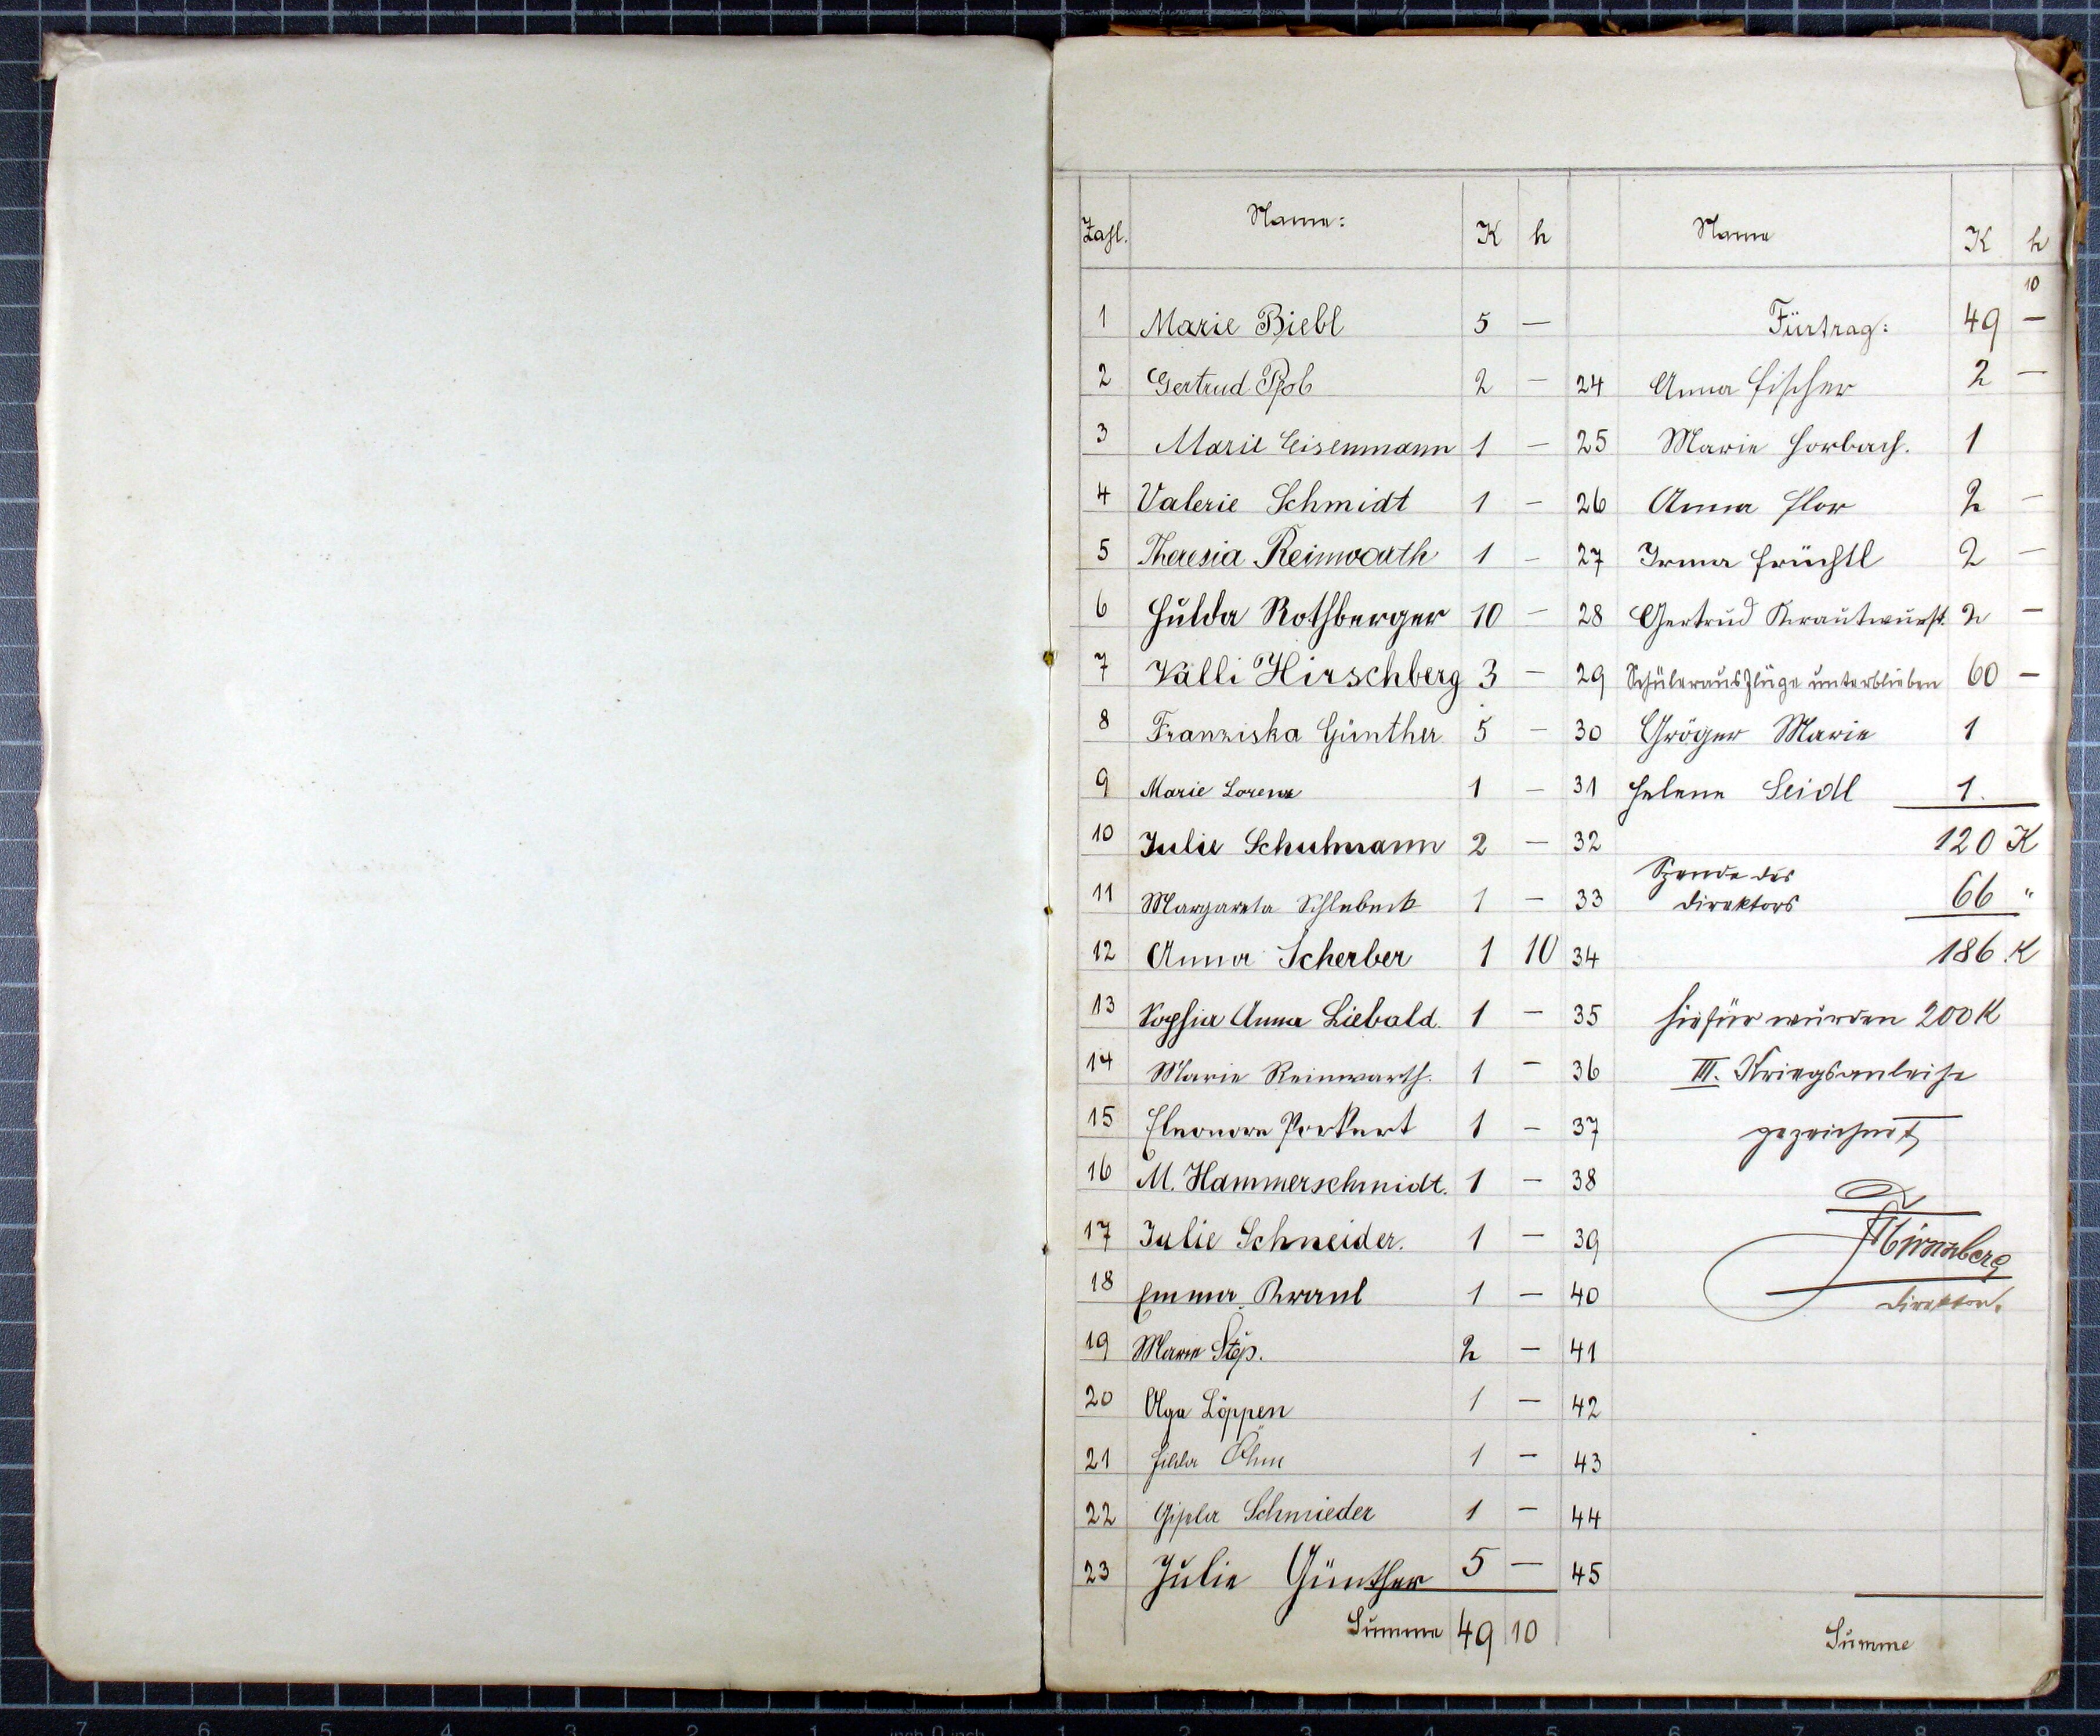 Zahl. Name: K h Name K h
10
1 Marie Biebl 5 — Fürtrag: 49 —
2 Gertrud 2 — 24 Anna Fischer 2 —
3 Marie Eisenmann 1 — 25 Marie Horbach. 1
4 Valerie Schmidt 1 — 26 Anna Flor 2 —
5 Theresia Reinwarth 1 — 27 Irma Früchtl 2 —
6 Hulda Rothberger 10 — 28 Gertrud Krautwurst. 2 —
7 Valli Hirschberg 3 — 29 Schülerausflüge unterblieben 60 —
8 Franziska Günther 5 — 30 Gröger Marie 1
9 Marie Lorenz 1 — 31 Helene Seidl 1.
10 Julie Schuhmann 2 — 32 120 K
11 Margareta 1 — 33 Spende des Direktors 66 "
12 Anna Scherber 1 10 34 186 K
13 Sophia Anna Liebald. 1 — 35 Hiefür wurden 200 K
14 Marie Reinwarth. 1 — 36 III. Kriegsanleihe
15 Eleonore Porkert 1 — 37 gezeichnet
16 M. Hammerschmidt. 1 — 38
17 Julie Schneider. 1 — 39
18 Emma Kraul 1 — 40 Direktor.
19 Marie Step. 2 — 41
20 Olga Löppen 1 — 42
21 Hilda Öhm 1 — 43
22 Gisela Schmieder 1 — 44
23 Julie Günther 5 — 45
Summe 49 10 Summe
7 6 5 4 3 2 1 inch 0 inch 1 2 3 4 5 6 7 8 9